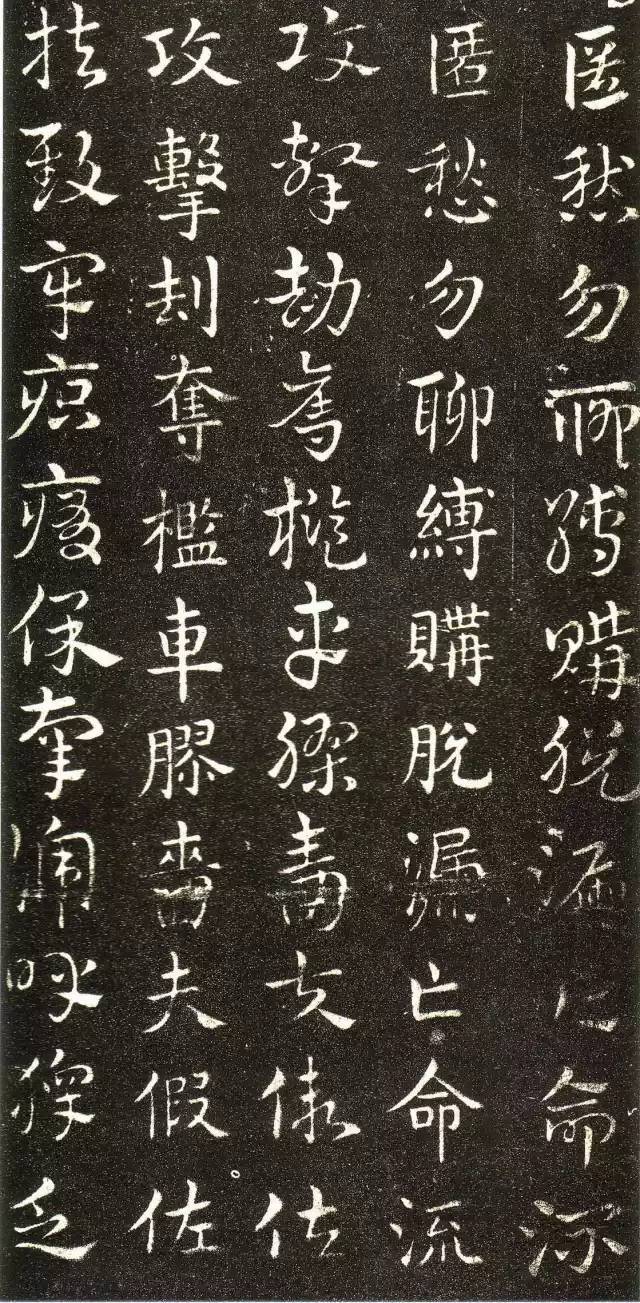 匿愁勿聊縛購脫漏亡命流
匿愁勿聊縛購脫漏亡命流
攻擊劫奪檻車膠嗇夫假佐
攻擊刦奪檻車膠嗇夫假佐
扶致牢保辜啼呼乏